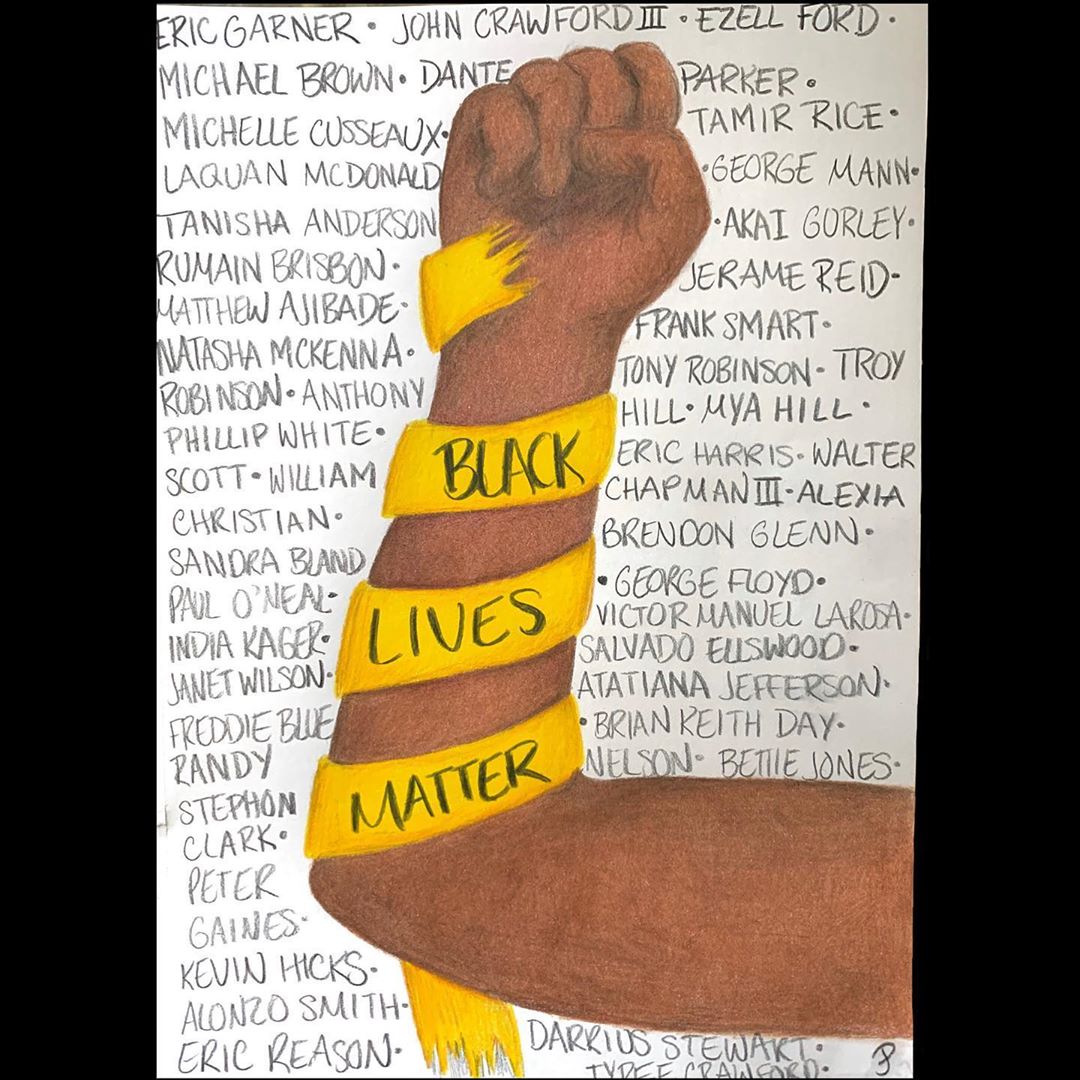 ERIC GARNER · JOHN CRAWFORD III · EZELL FORD ·
MICHAEL BROWN · DANTE PARKER ·
MICHELLE CUSSEAUX · TAMIR RICE ·
LAQUAN MCDONALD · GEORGE MANN ·
TANISHA ANDERSON · AKAI GURLEY ·
RUMAIN BRISBON · JERAME REID ·
MATTHEW AJIBADE · FRANK SMART ·
NATASHA MCKENNA · TONY ROBINSON · TROY
ROBINSON · ANTHONY HILL · MYA HILL ·
PHILLIP WHITE · ERIC HARRIS · WALTER
SCOTT · WILLIAM CHAPMAN III · ALEXIA
CHRISTIAN · BRENDON GLENN ·
SANDRA BLAND · GEORGE FLOYD ·
PAUL O'NEAL · VICTOR MANUEL LAROSA ·
INDIA KAGER · SALVADO ELLSWOOD ·
JANET WILSON · ATATIANA JEFFERSON ·
FREDDIE BLUE · BRIAN KEITH DAY ·
RANDY NELSON · BETTIE JONES ·
STEPHON
CLARK ·
PETER
GAINES ·
KEVIN HICKS ·
ALONZO SMITH ·
ERIC REASON · DARRIUS STEWART ·
TYREE CRAWFORD ·
BLACK
LIVES
MATTER